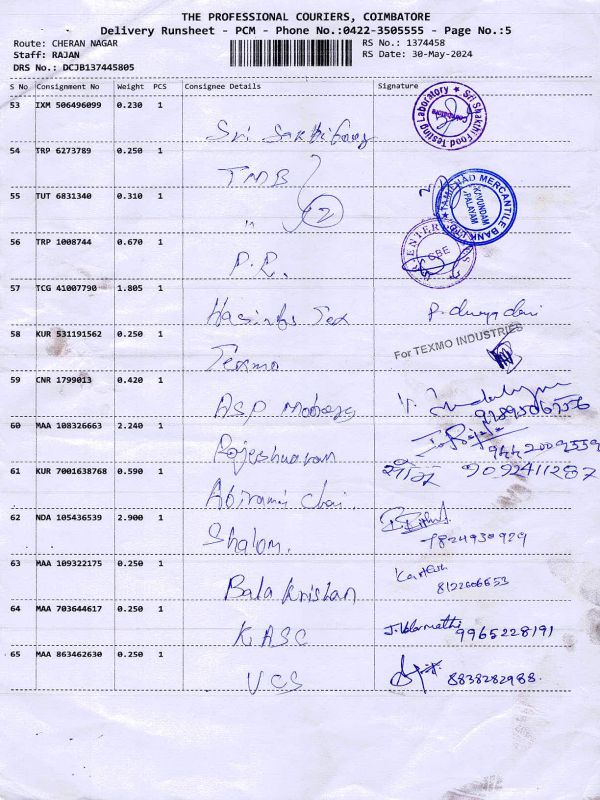 THE PROFESSIONAL COURIERS, COIMBATORE
Delivery Runsheet - PCM - Phone No.:0422-3505555 - Page No.:5
Route: CHERAN NAGAR RS No.: 1374458
Staff: RAJAN RS Date: 30-May-2024
DRS No.: DCJB137445805
S No Consignment No Weight PCS Consignee Details Signature
53 IXM 506496099 0.230 1 Sri Sri Shakthi Food Testing Laboratory Coimbatore
54 TRP 6273789 0.250 1 TMB 2
55 TUT 6831340 0.310 1 " 2 TAMILNAD MERCANTILE BANK LTD. KAVUNDAM PALAYAM
56 TRP 1008744 0.670 1 P.R. CBE
57 TCG 41007790 1.805 1 Tex P. durga devi
58 KUR 531191562 0.250 1 Texmo For TEXMO INDUSTRIES
59 CNR 1799013 0.420 1 ASP
60 MAA 108326663 2.240 1 Rajeshwaran 9442009559
61 KUR 7001638768 0.590 1 Abirami Chai 9092411287
62 NDA 105436539 2.900 1 Shalom. 7824930929
63 MAA 109322175 0.250 1 Bala Krishan 8122606653
64 MAA 703644617 0.250 1 KASC J. Valarmathi 9965228191
65 MAA 863462630 0.250 1 VCS 8838282988.